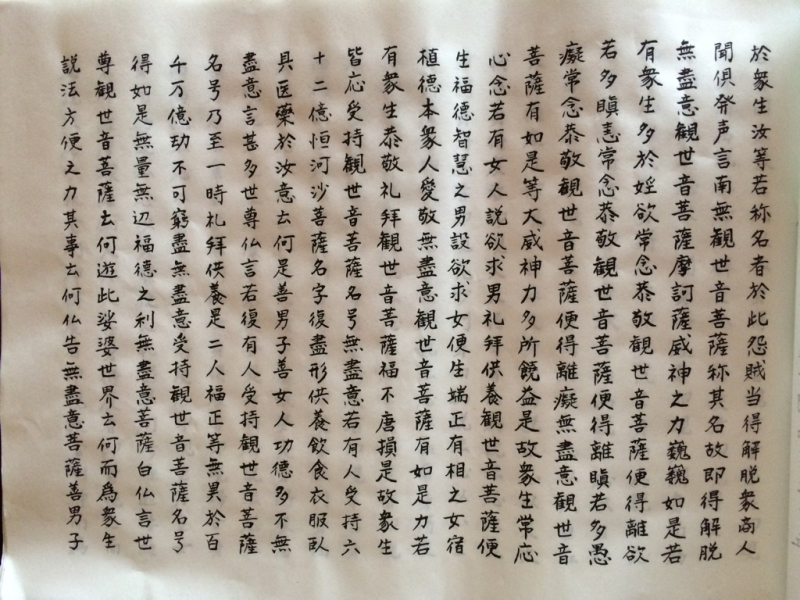 於衆生汝等若称名者於此怨賊当得解脱衆商人
聞倶発声言南無観世音菩薩称其名故即得解脱
無盡意観世音菩薩摩訶薩威神之力巍巍如是若
有衆生多於婬欲常念恭敬観世音菩薩便得離欲
若多瞋恚常念恭敬観世音菩薩便得離瞋若多愚
癡常念恭敬観世音菩薩便得離癡無盡意観世音
菩薩有如是等大威神力多所饒益是故衆生常応
心念若有女人説欲求男礼拜供養観世音菩薩便
生福德智慧之男設欲求女便生端正有相之女宿
植德本衆人愛敬無盡意観世音菩薩有如是力若
有衆生恭敬礼拜観世音菩薩福不唐損是故衆生
皆応受持観世音菩薩名号無盡意若有人受持六
十二億恒河沙菩薩名字復盡形供養飲食衣服臥
具医藥於汝意云何是善男子善女人功德多不無
盡意言甚多世尊仏言若復有人受持観世音菩薩
名号乃至一時礼拜供養是二人福正等無異於百
千万億劫不可窮盡無盡意受持観世音菩薩名号
得如是無量無辺福德之利無盡意菩薩白仏言世
尊観世音菩薩云何遊此娑婆世界云何而為衆生
説法方便之力其事云何仏告無盡意菩薩善男子